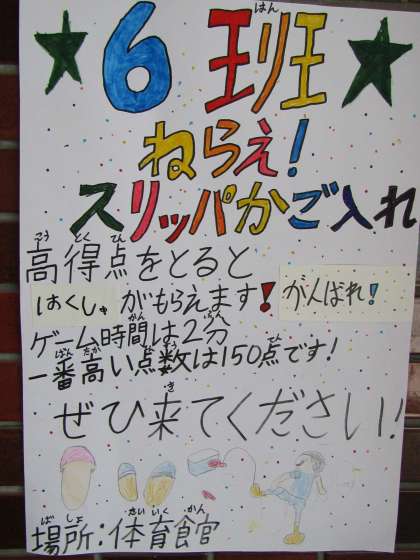 6班
ねらえ!
スリッパかご入れ
高得点をとると
はくしゅがもらえます! がんばれ!
ゲーム時間は2分
一番高い点数は150点です!
ぜひ来てください!
場所:体育食官